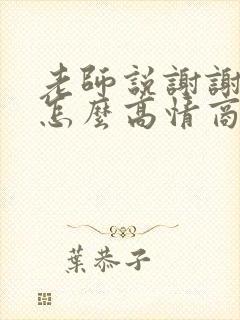 老師説謝謝
怎麼高情商
葉恭子